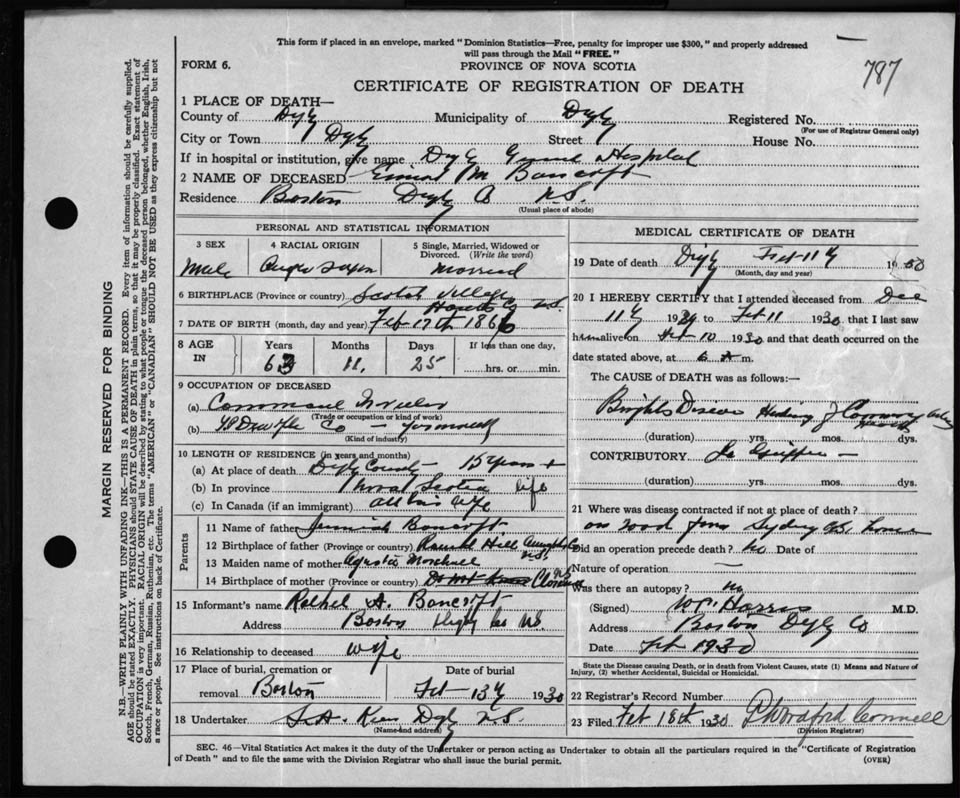 This form if placed in an envelope, marked "Dominion Statistics—Free, penalty for improper use $300," and properly addressed
will pass through the Mail "FREE."
FORM 6.
PROVINCE OF NOVA SCOTIA
787
CERTIFICATE OF REGISTRATION OF DEATH
1 PLACE OF DEATH—
County of Digby Municipality of Digby Registered No.
(For use of Registrar General only)
City or Town Digby Street House No.
If in hospital or institution, give name Digby General Hospital
2 NAME OF DECEASED M Bancroft
Residence Digby Co N.S.
(Usual place of abode)
PERSONAL AND STATISTICAL INFORMATION
3 SEX 4 RACIAL ORIGIN 5 Single, Married, Widowed or Divorced. (Write the word)
Male Anglo Saxon Married
6 BIRTHPLACE (Province or country) Scotch Village
Hants Co N.S.
7 DATE OF BIRTH (month, day and year) Feb 17th 1866
8 AGE IN Years Months Days If less than one day,
63 11 25 hrs. or min.
9 OCCUPATION OF DECEASED
(a)
(Trade or occupation or kind of work)
(b) Co — Yarmouth
(Kind of industry)
10 LENGTH OF RESIDENCE (in years and months)
(a) At place of death Digby County 15 years +
(b) In province Nova Scotia life
(c) In Canada (if an immigrant) all his life
Parents
11 Name of father Jeremiah Bancroft
12 Birthplace of father (Province or country) Round Hill Annapolis Co
N.S.
13 Maiden name of mother
14 Birthplace of mother (Province or country) Do not know
15 Informant's name A. Bancroft
Address Digby Co N.S.
16 Relationship to deceased wife
17 Place of burial, cremation or Date of burial
removal Feb 13th 1930
18 Undertaker Digby N.S.
(Name and address)
MEDICAL CERTIFICATE OF DEATH
19 Date of death Digby Feb 11th 1930
(Month, day and year)
20 I HEREBY CERTIFY that I attended deceased from Dec
11th 1929 to Feb 11 1930 that I last saw
him alive on Feb 10 1930 and that death occurred on the
date stated above, at 6 A m.
The CAUSE of DEATH was as follows:—
Brights Disease Hardening of Coronary
(duration) yrs. mos. dys.
CONTRIBUTORY La Grippe —
(duration) yrs. mos. dys.
21 Where was disease contracted if not at place of death?
on road from Sydney home
Did an operation precede death? No Date of
Nature of operation —
Was there an autopsy? no
(Signed) Harris M.D.
Address Digby Co
Date Feb 1930
State the Disease causing Death, or in death from Violent Causes, state (1) Means and Nature of
Injury, (2) whether Accidental, Suicidal or Homicidal.
22 Registrar's Record Number
23 Filed Feb 18th 1930
(Division Registrar)
SEC. 46—Vital Statistics Act makes it the duty of the Undertaker or person acting as Undertaker to obtain all the particulars required in the "Certificate of Registration
of Death" and to file the same with the Division Registrar who shall issue the burial permit. (OVER)
MARGIN RESERVED FOR BINDING
N.B.—WRITE PLAINLY WITH UNFADING INK—THIS IS A PERMANENT RECORD. Every item of information should be carefully supplied.
AGE should be stated EXACTLY. PHYSICIANS should STATE CAUSE OF DEATH in plain terms, so that it may be properly classified. Exact statement of
OCCUPATION is very important. RACIAL ORIGIN will be described by stating to what people or tongue the deceased person belonged, whether English, Irish,
Scotch, French, German, Russian, Ruthenian, etc. The terms "AMERICAN" or "CANADIAN" SHOULD NOT BE USED as they express citizenship but not
a race or people. See instructions on back of Certificate.